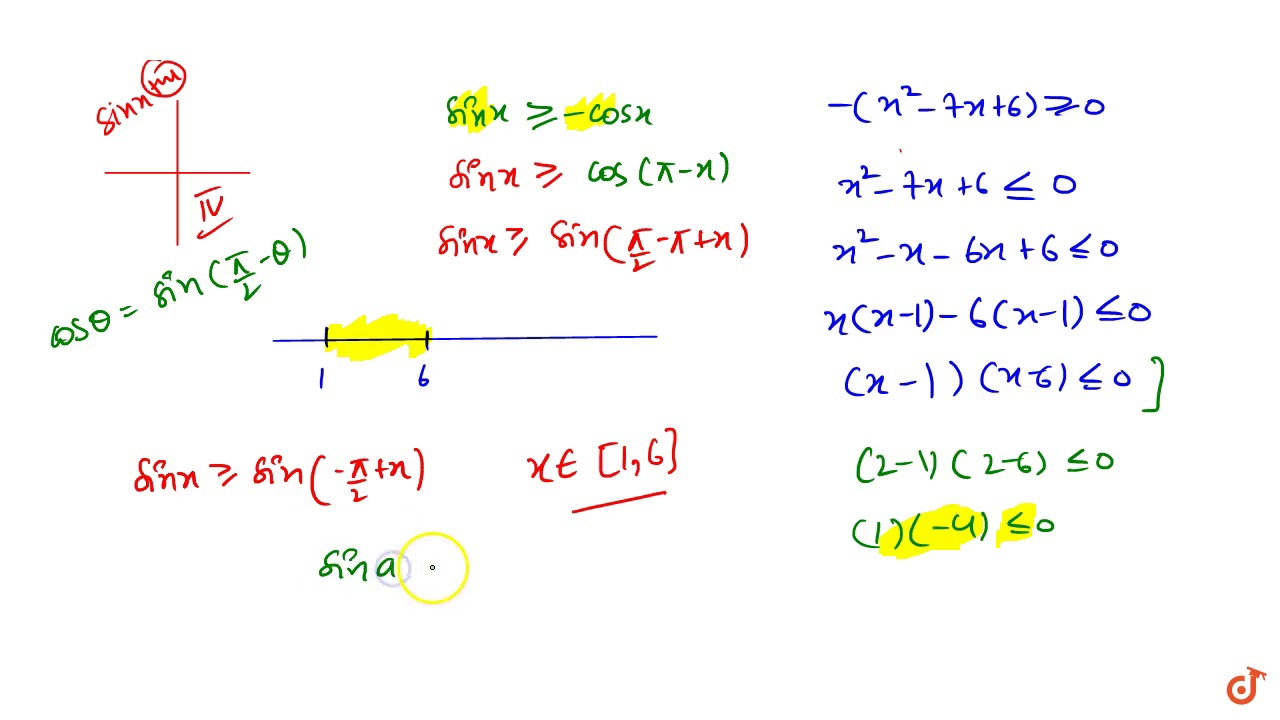 sinx +ive
IV
cosθ = sin(π/2-θ)
sinx ≥ -cosx
sinx ≥ cos(π-x)
sinx ≥ sin(π/2-π+x)
1 6
sinx ≥ sin(-π/2+x)
x∈ [1,6]
sin a
-(x²-7x+6) ≥ 0
x²-7x+6 ≤ 0
x²-x-6x+6 ≤ 0
x(x-1)-6(x-1) ≤ 0
(x-1) (x-6) ≤ 0 ]
(2-1) (2-6) ≤ 0
(1) (-4) ≤ 0